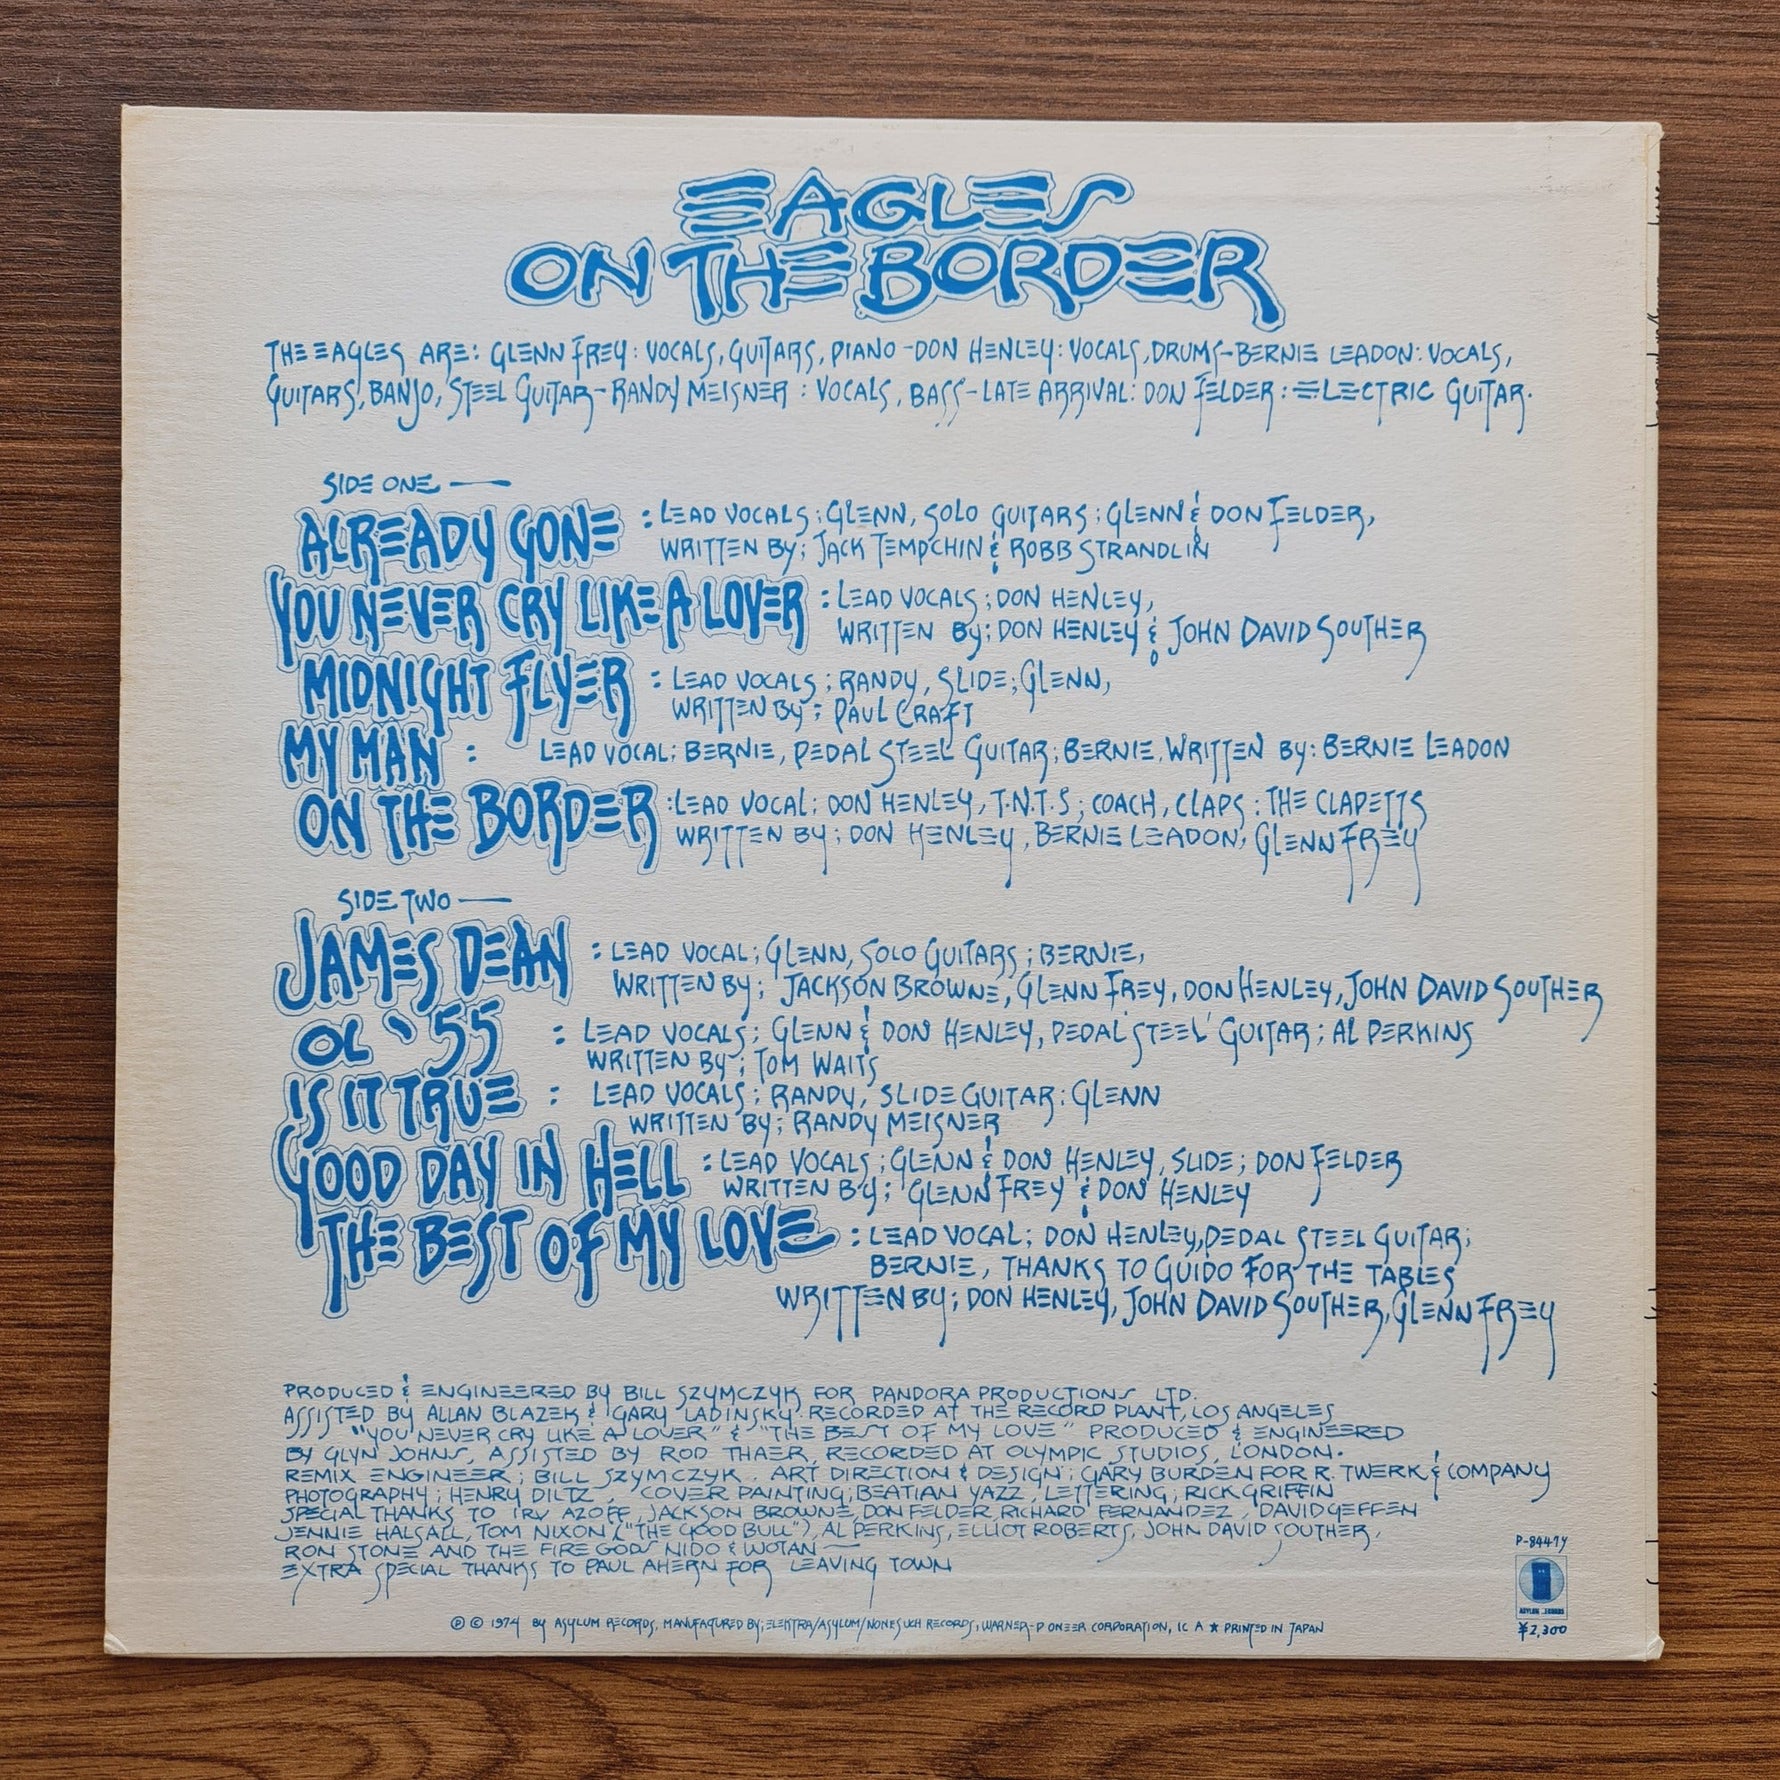 EAGLES
ON THE BORDER
THE EAGLES ARE: GLENN FREY: VOCALS, GUITARS, PIANO - DON HENLEY: VOCALS, DRUMS - BERNIE LEADON: VOCALS,
GUITARS, BANJO, STEEL GUITAR - RANDY MEISNER: VOCALS, BASS - LATE ARRIVAL: DON FELDER: ELECTRIC GUITAR.
SIDE ONE —
ALREADY GONE : LEAD VOCALS; GLENN, SOLO GUITARS; GLENN & DON FELDER,
WRITTEN BY; JACK TEMPCHIN & ROBB STRANDLIN
YOU NEVER CRY LIKE A LOVER : LEAD VOCALS; DON HENLEY,
WRITTEN BY; DON HENLEY & JOHN DAVID SOUTHER
MIDNIGHT FLYER : LEAD VOCALS; RANDY, SLIDE; GLENN,
WRITTEN BY; PAUL CRAFT
MY MAN : LEAD VOCAL; BERNIE, PEDAL STEEL GUITAR; BERNIE, WRITTEN BY: BERNIE LEADON
ON THE BORDER : LEAD VOCAL; DON HENLEY, T.N.T.S; COACH, CLAPS: THE CLAPETTS
WRITTEN BY; DON HENLEY, BERNIE LEADON, GLENN FREY
SIDE TWO —
JAMES DEAN : LEAD VOCAL; GLENN, SOLO GUITARS; BERNIE,
WRITTEN BY; JACKSON BROWNE, GLENN FREY, DON HENLEY, JOHN DAVID SOUTHER
OL '55 : LEAD VOCALS; GLENN & DON HENLEY, PEDAL STEEL GUITAR; AL PERKINS
WRITTEN BY; TOM WAITS
IS IT TRUE : LEAD VOCALS; RANDY, SLIDE GUITAR: GLENN
WRITTEN BY; RANDY MEISNER
GOOD DAY IN HELL : LEAD VOCALS; GLENN & DON HENLEY, SLIDE; DON FELDER
WRITTEN BY; GLENN FREY & DON HENLEY
THE BEST OF MY LOVE : LEAD VOCAL; DON HENLEY, PEDAL STEEL GUITAR;
BERNIE, THANKS TO GUIDO FOR THE TABLES
WRITTEN BY; DON HENLEY, JOHN DAVID SOUTHER, GLENN FREY
PRODUCED & ENGINEERED BY BILL SZYMCZYK FOR PANDORA PRODUCTIONS LTD.
ASSISTED BY ALLAN BLAZEK & GARY LADINSKY. RECORDED AT THE RECORD PLANT, LOS ANGELES
"YOU NEVER CRY LIKE A LOVER" & "THE BEST OF MY LOVE" PRODUCED & ENGINEERED
BY GLYN JOHNS, ASSISTED BY ROD THAER, RECORDED AT OLYMPIC STUDIOS, LONDON.
REMIX ENGINEER; BILL SZYMCZYK. ART DIRECTION & DESIGN; GARY BURDEN FOR R. TWERK & COMPANY
PHOTOGRAPHY; HENRY DILTZ, COVER PAINTING; BEATIAN YAZZ, LETTERING; RICK GRIFFIN
SPECIAL THANKS TO IRV AZOFF, JACKSON BROWNE, DON FELDER, RICHARD FERNANDEZ, DAVID GEFFEN
JENNIE HALSALL, TOM NIXON ("THE GOOD BULL"), AL PERKINS, ELLIOT ROBERTS, JOHN DAVID SOUTHER,
RON STONE AND THE FIRE GODS NIDO & WOTAN —
EXTRA SPECIAL THANKS TO PAUL AHERN FOR LEAVING TOWN
P-8447Y
ASYLUM RECORDS
¥2,300
Ⓟ © 1974 BY ASYLUM RECORDS, MANUFACTURED BY; ELEKTRA/ASYLUM/NONESUCH RECORDS, WARNER-PIONEER CORPORATION, ★ PRINTED IN JAPAN